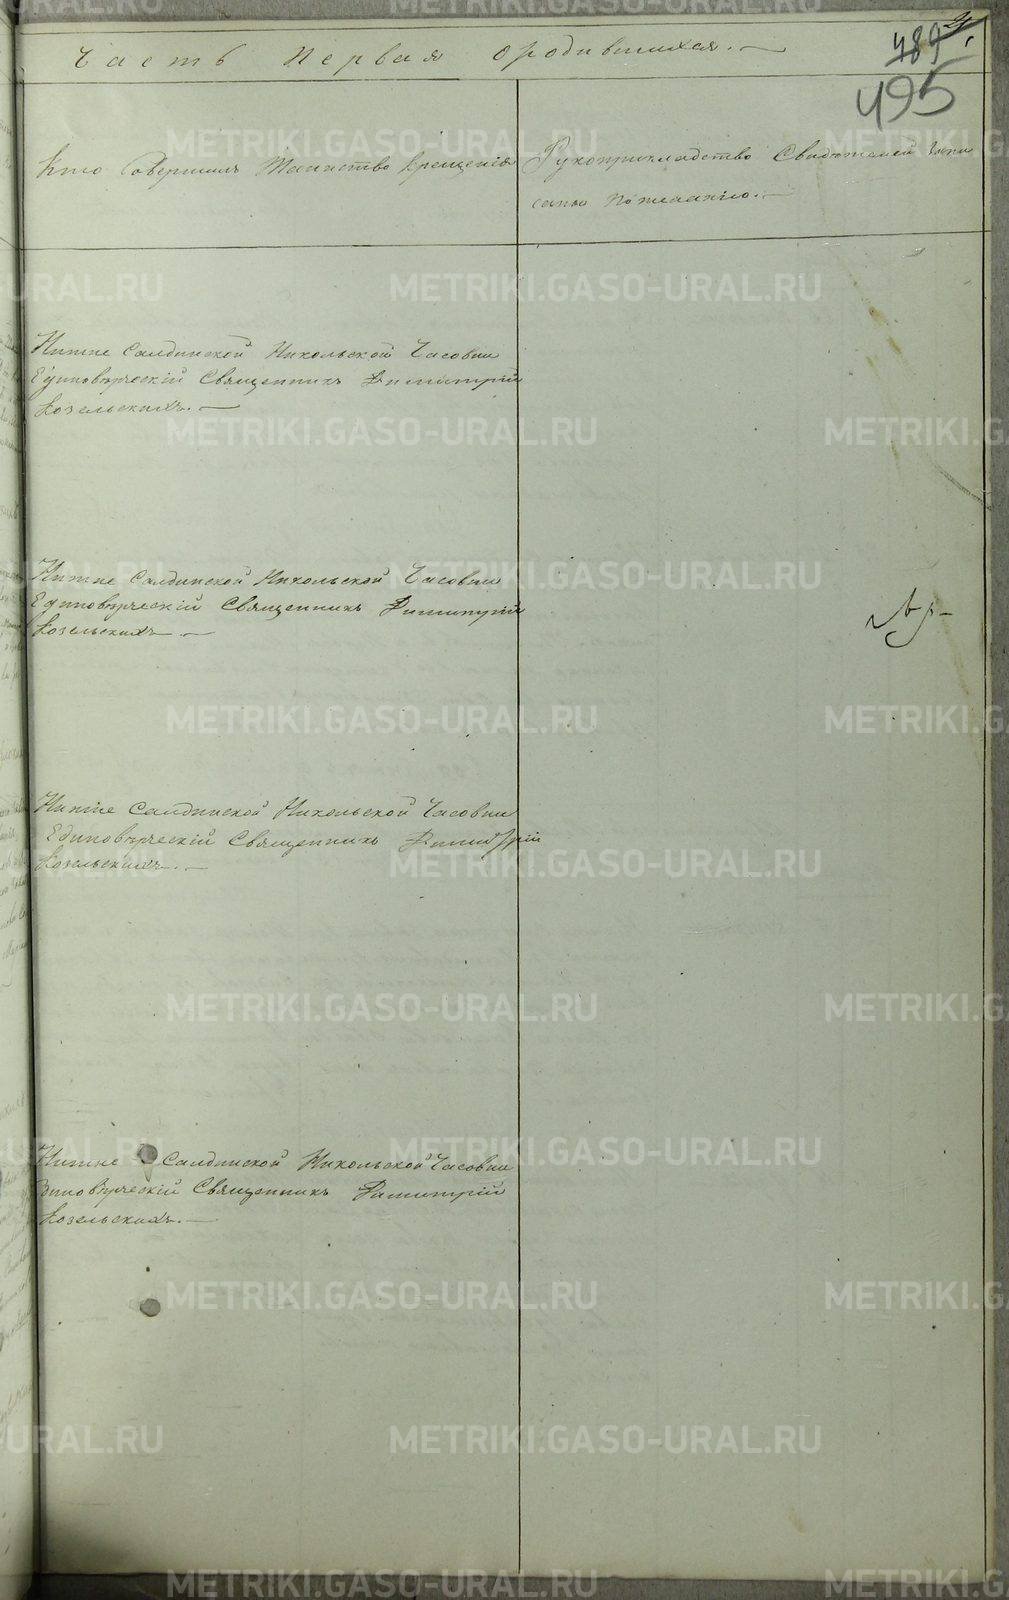 Часть Первая о родившихся.
489
495
Кто Совершилъ Таинство Крещенія
Рукоприкладство Свидѣтелей запи
саны по желанію.
Нижне Салдинской Никольской Часовни
Единовѣрческій Священникъ Димитрій
Козельскихъ.
Нижне Салдинской Никольской Часовни
Единовѣрческій Священникъ Димитрій
Козельскихъ
Нижне Салдинской Никольской Часовни
Единовѣрческій Священникъ Димитрій
Козельскихъ.
Нижне Салдинской Никольской Часовни
Единовѣрческій Священникъ Димитрій
Козельскихъ.
METRIKI.GASO-URAL.RU